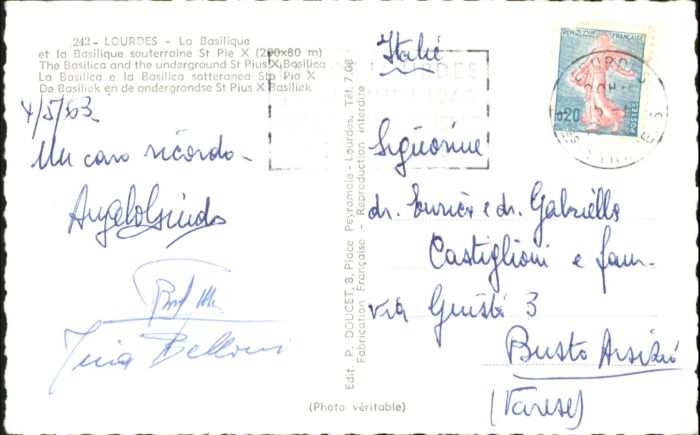 242 - LOURDES - La Basilique
et la Basilique souterraine St Pie X (200x80 m)
The Basilica and the underground St Pius X Basilica
La Basilica e la Basilica sotteranea Sto Pio X
De Basiliek en de ondergrondse St Pius X Basiliek
4/5/63
Un caro ricordo
Tina Belloni
(Photo véritable)
Edit. P. DOUCET, 8, Place Peyramale - Lourdes. Tél. 7.08
Fabrication Française - Reproduction interdite
LOURDES
REPUBLIQUE FRANÇAISE
0,20
POSTES
LOURDES
Italie
Signorine
dr. e dr. Gabriella
Castiglioni e fam.
via Giusti 3
Busto Arsizio
(Varese)